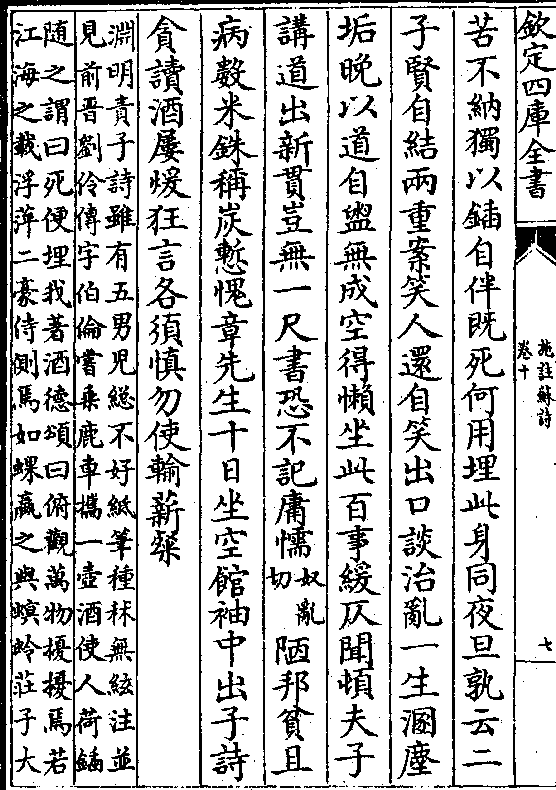 欽定四庫全書
施註蘇詩
卷十
七
苦不納獨以鍤自伴既死何用埋此身同夜旦孰云二
子賢自結兩重案笑人還自笑出口談治亂一生溷塵
垢晚以道自盥無成空得懶坐此百事緩仄聞頓夫子
講道出新貫豈無一尺書恐不記庸懦奴亂切陋邦貧且
病數米銖稱炭慙愧章先生十日坐空館袖中出子詩
貪讀酒屢煖狂言各須慎勿使輸薪粲
淵明責子詩雖有五男兒緫不好紙筆種秫無絃注並
見前晉劉伶傳字伯倫嘗乗鹿車攜一壺酒使人荷鍤
随之謂曰死便埋我著酒德頌曰俯觀萬物擾擾焉若
江海之載浮萍二豪侍側焉如蜾蠃之與螟蛉莊子大